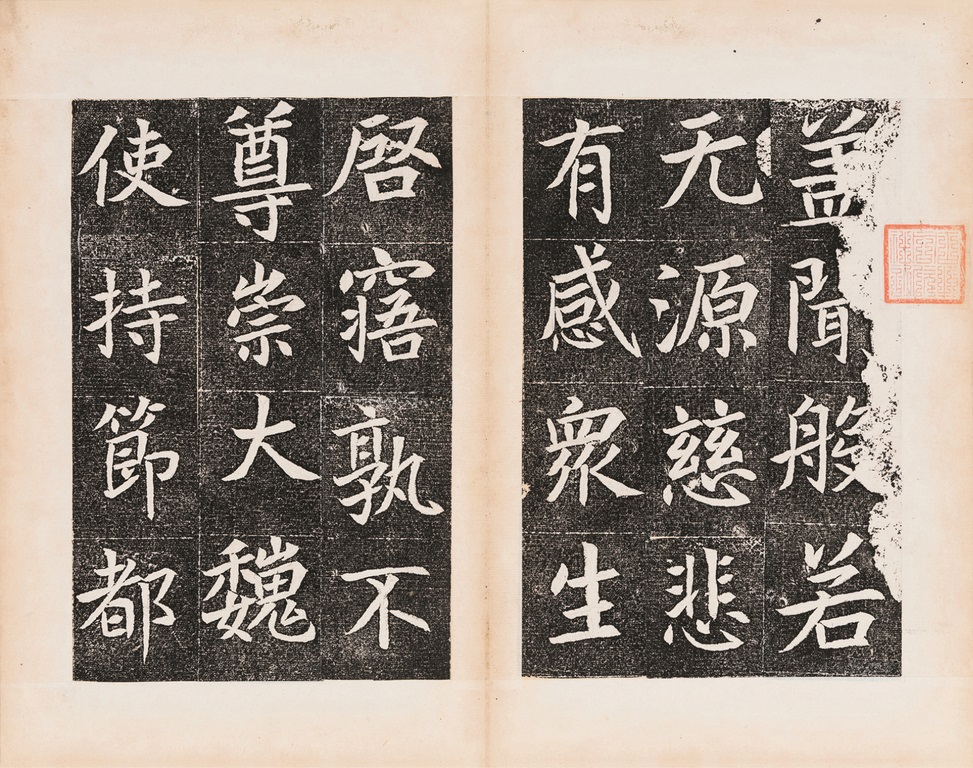 盖聞般若
无源慈悲
有感衆生
啓寤孰不
尊崇大魏
使持節都